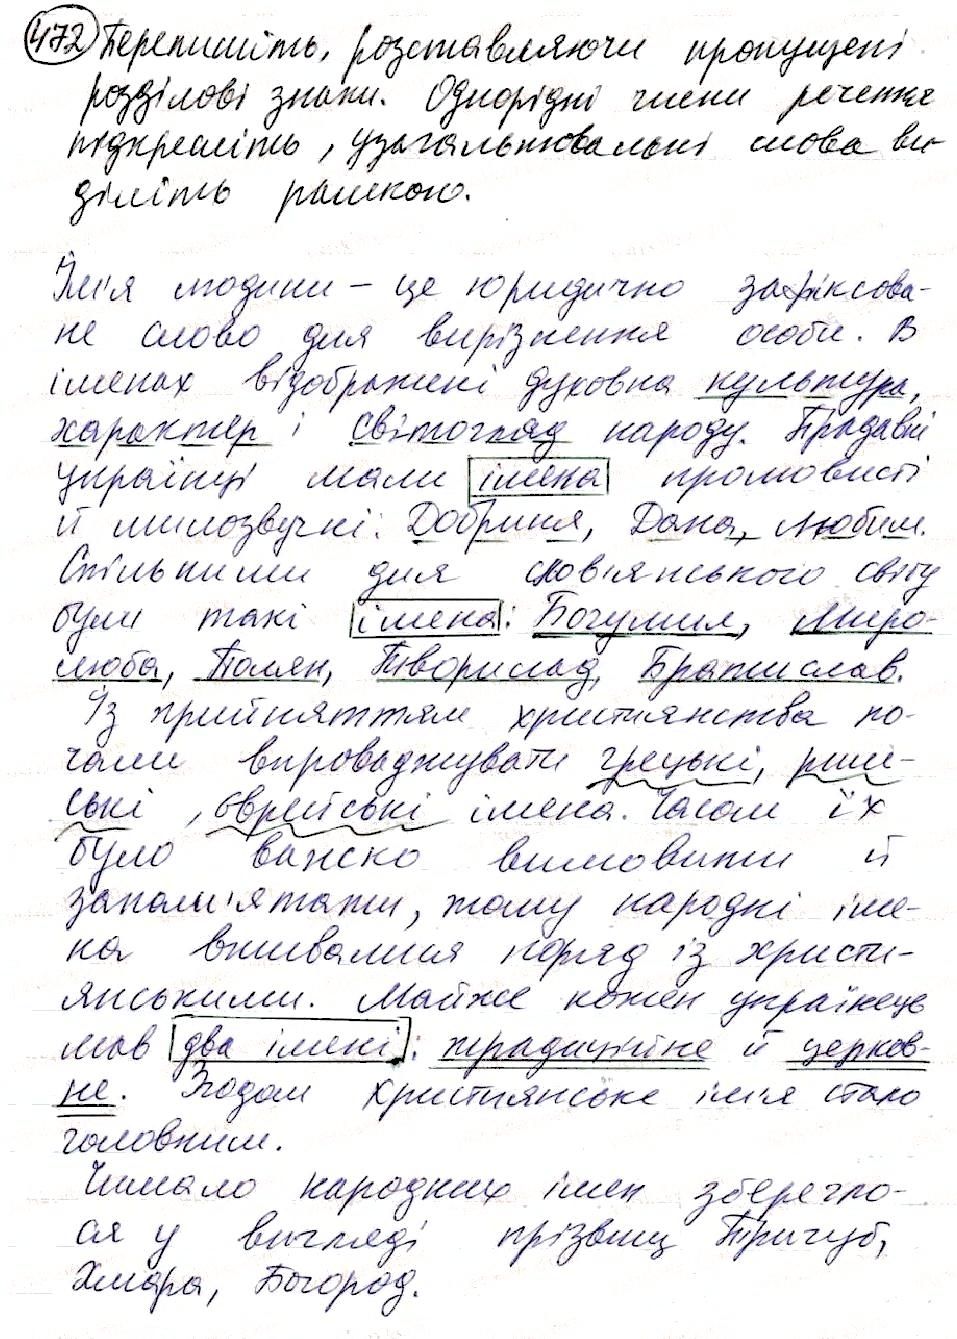 472 Перепишіть, розставляючи пропущені
розділові знаки. Однорідні члени речення
підкресліть, узагальнювальні слова ви-
діліть рамкою.
Ім'я людини – це юридично зафіксова-
не слово для вирізнення особи. В
іменах відображені духовна культура,
характер і світогляд народу. Прадавні
українці мали імена промовисті
й милозвучні: Добриня, Дана, Любим.
Спільними для слов'янського світу
були такі імена: Богумил, Миро-
люба, Полян, Творислад, Братислав.
Із прийняттям християнства по-
чали впроваджувати грецькі, рим-
ські, єврейські імена. Часом їх
було важко вимовити й
запам'ятати, тому народні іме-
на вживалися поряд із христи-
янськими. Майже кожен українець
мав два імені: традиційне й церков-
не. Згодом християнське ім'я стало
головним.
Чимало народних імен зберегло-
ся у вигляді прізвищ Тричуб,
Хмара, Богород.